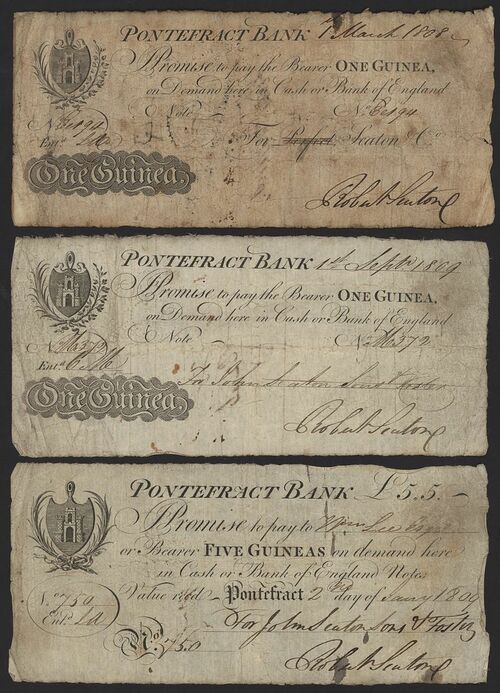 PONTEFRACT BANK 1st March 1808
I Promise to pay the Bearer ONE GUINEA,
on Demand here in Cash or Bank of England
Note No E194
No E194
Entd
For Perfect, Seaton & Co
One Guinea,
Robert Seaton
PONTEFRACT BANK 1st Septr 1809
I Promise to pay the Bearer ONE GUINEA,
on Demand here in Cash or Bank of England
Note No M372
No M372
Entd
For John Seaton Sons & Foster
One Guinea,
Robert Seaton
PONTEFRACT BANK £5.5.—
I Promise to pay to Wm Lee Esqr
or Bearer FIVE GUINEAS on demand here
in Cash or Bank of England Notes
Value recd Pontefract 2d day of Jany
No 750
Entd
For John Seaton Sons & Foster
No 750
Robert Seaton